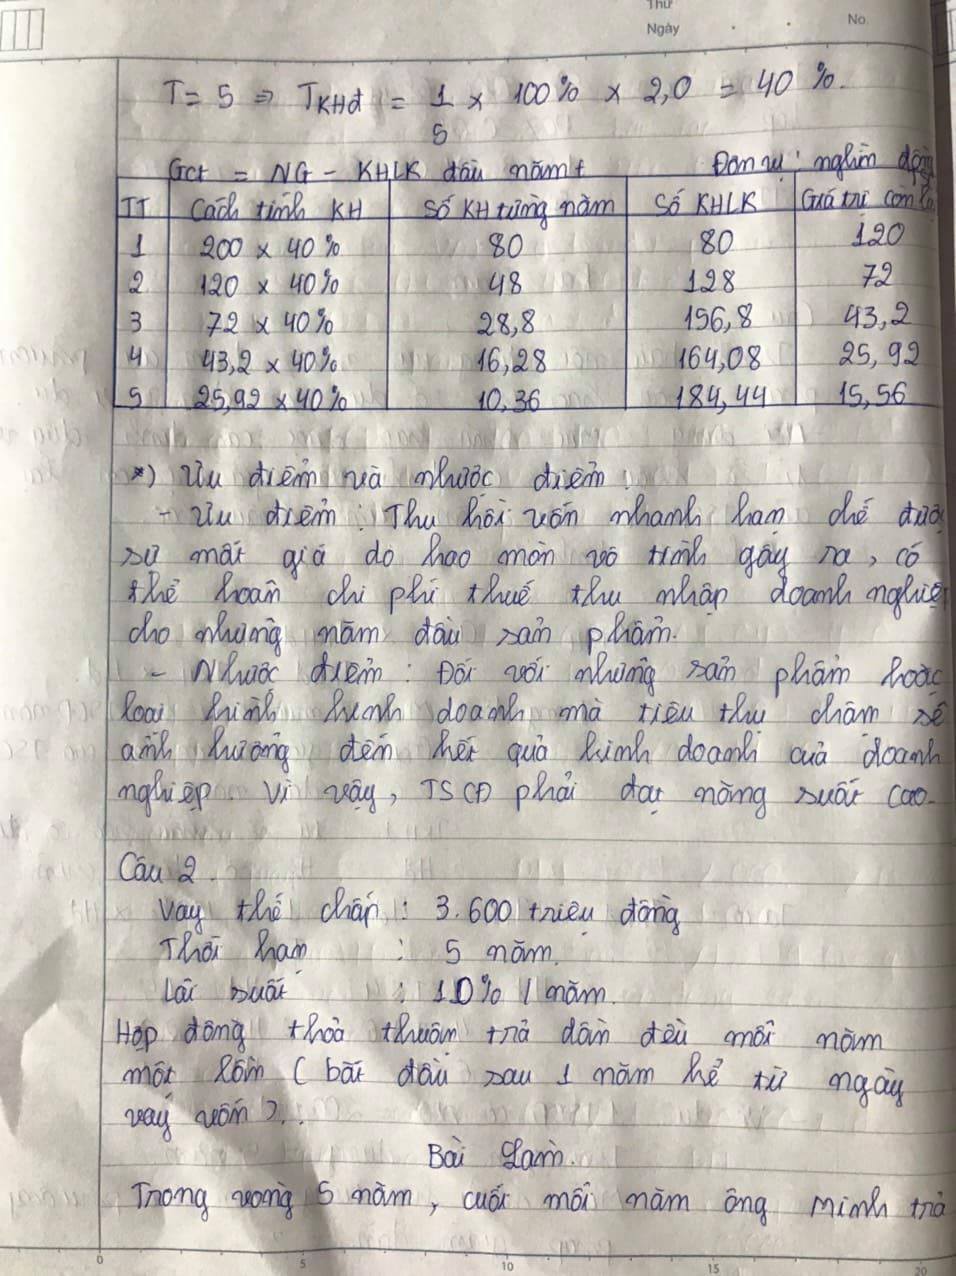 Thứ
Ngày No.
T = 5 => TKHđ = 1/5 x 100% x 2,0 = 40%.
Gct = NG - KHLK đầu năm t Đơn vị: nghìn đồng
TT Cách tính KH Số KH từng năm Số KHLK Giá trị còn lại
1 200 x 40% 80 80 120
2 120 x 40% 48 128 72
3 72 x 40% 28,8 156,8 43,2
4 43,2 x 40% 16,28 164,08 25,92
5 25,92 x 40% 10,36 184,44 15,56
*) Ưu điểm và nhược điểm:
- Ưu điểm: Thu hồi vốn nhanh hạn chế được
sự mất giá do hao mòn vô tình gây ra, có
thể hoãn chi phí thuế thu nhập doanh nghiệp
cho những năm đầu sản phẩm.
- Nhược điểm: Đối với những sản phẩm hoặc
loại hình kinh doanh mà tiêu thụ chậm sẽ
ảnh hưởng đến kết quả kinh doanh của doanh
nghiệp. Vì vậy, TSCĐ phải đạt năng suất cao.
Câu 2.
Vay thế chấp: 3.600 triệu đồng
Thời hạn : 5 năm.
Lãi suất : 10% / năm.
Hợp đồng thỏa thuận trả dần đều mỗi năm
một lần (bắt đầu sau 1 năm kể từ ngày
vay vốn)..
Bài Làm.
Trong vòng 5 năm, cuối mỗi năm ông Minh trả
0 5 10 15 20